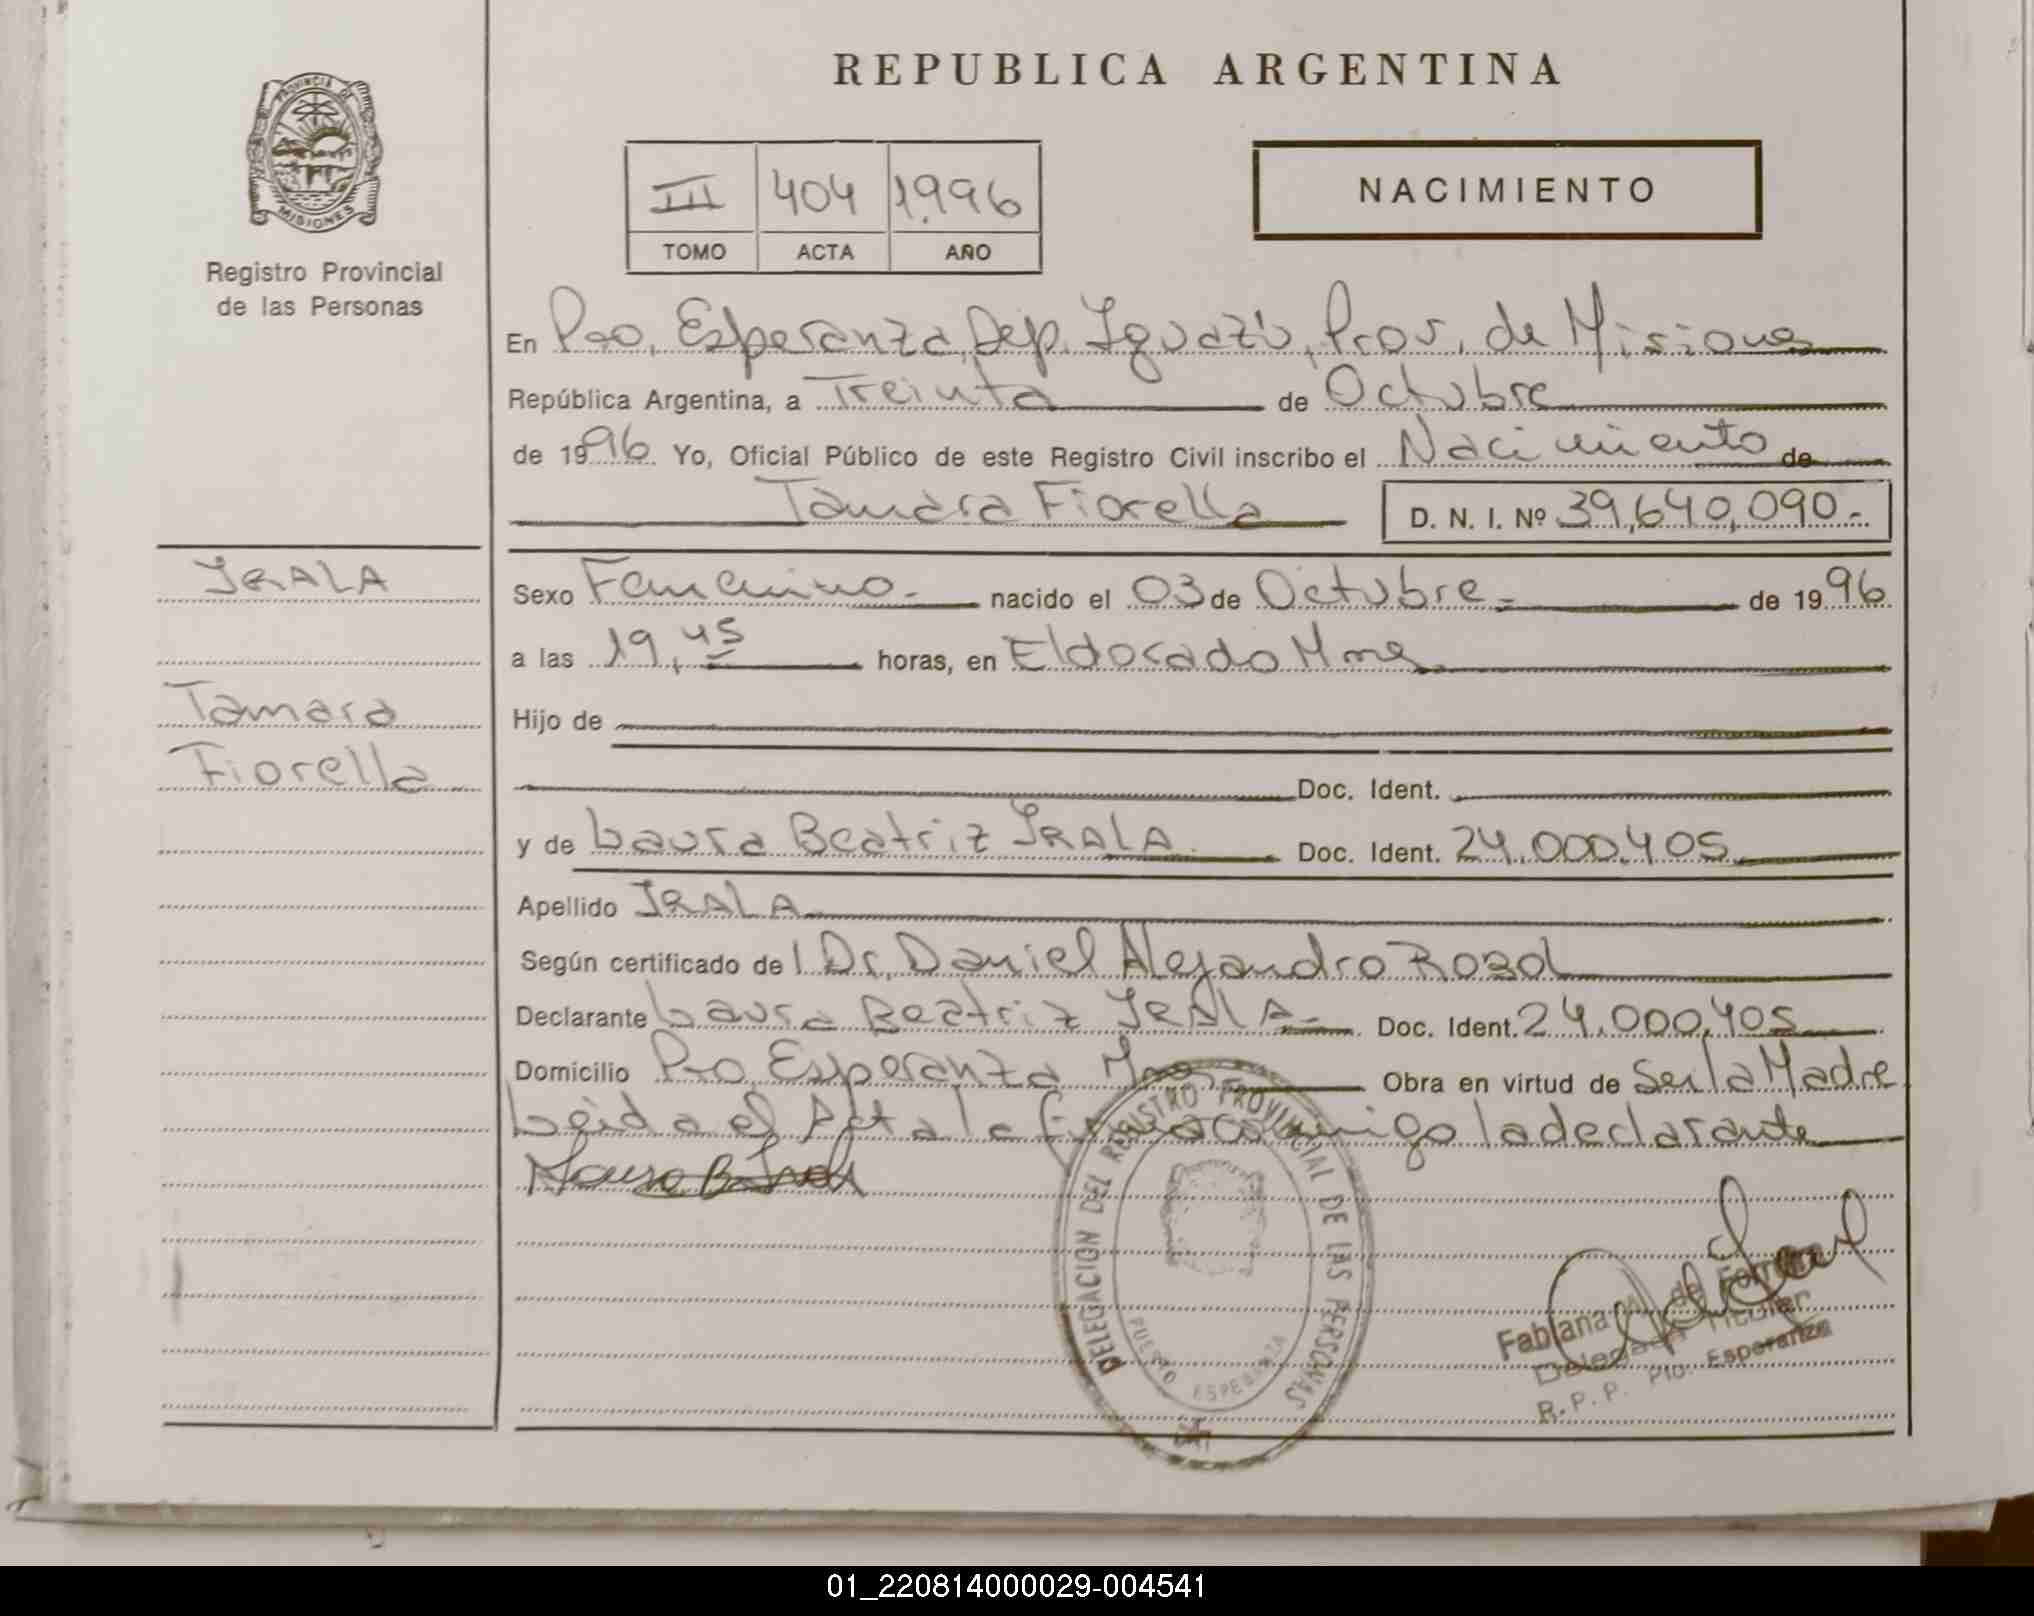 REPUBLICA ARGENTINA
PROVINCIA DE MISIONES
Registro Provincial
de las Personas
III 404 1996
TOMO ACTA AÑO
NACIMIENTO
En Pto. Esperanza, Dep. Iguazú, Prov. de Misiones
República Argentina, a Treinta de Octubre
de 1996 Yo, Oficial Público de este Registro Civil inscribo el Nacimiento de
Tamara Fiorella D. N. I. Nº 39,640,090.-
IRALA
Tamara
Fiorella
Sexo Femenino.- nacido el 03 de Octubre.- de 1996
a las 19,45 horas, en Eldorado Mnes
Hijo de
Doc. Ident.
y de Laura Beatriz IRALA Doc. Ident. 24.000.405
Apellido IRALA
Según certificado de l Dr. Daniel Alejandro
Declarante Laura Beatriz IRALA.- Doc. Ident. 24.000.405
Domicilio Pto Esperanza Obra en virtud de Ser la Madre
Leida el Acta la firma conmigo la declarante
Laura B. Irala
DELEGACION DEL REGISTRO PROVINCIAL DE LAS PERSONAS
PUERTO ESPERANZA
Fabiana de
Titular
R.P.P. Pto. Esperanza
01_220814000029-004541